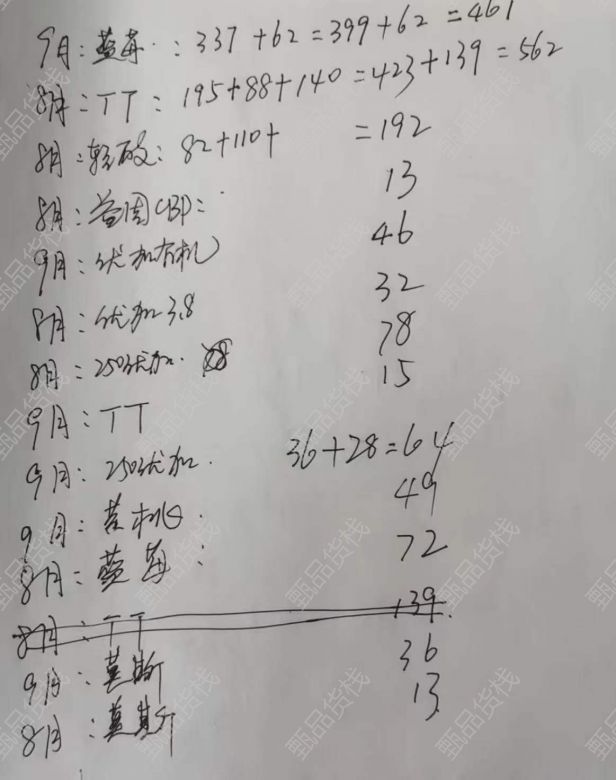 9月：蓝莓：337+62=399+62=461
8月：TT：195+88+140=423+139=562
8月：轻酸：82+110+ =192
8月：CBP： 13
9月：优加有机 46
8月：优加3.8 32
8月：250优加. 78
9月：TT 15
9月：250优加. 36+28=64
9月：黄桃 49
8月：蓝莓： 72
8月：TT 139.
9月：莫斯 36
8月：莫斯 13
甄品货栈